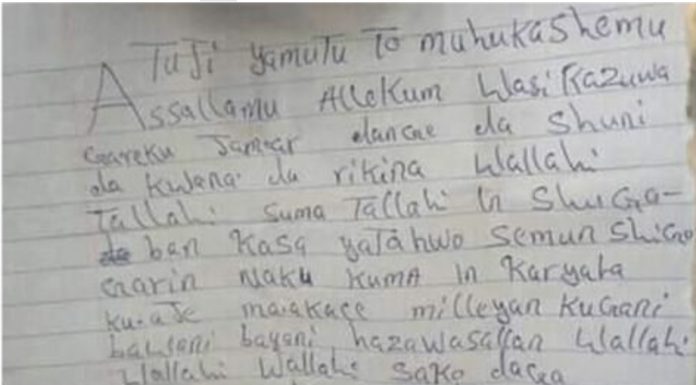 TuJi yamutu To muhukashemu
Assallamu Allekum Wasikazuwa
Gareku Jamaar dancae da Shuni
da Kwana da rikina Wallahi
Tallahi Suma Tallahi In ShuGa-
ban Kasa yatahwo Semun ShiGo
Garin Naku Kuma In Karyata
ku.aje ma.akace milleyan KuGani
bayani hazawasallan Wallahi
Wallahi Wallahi Sako daga